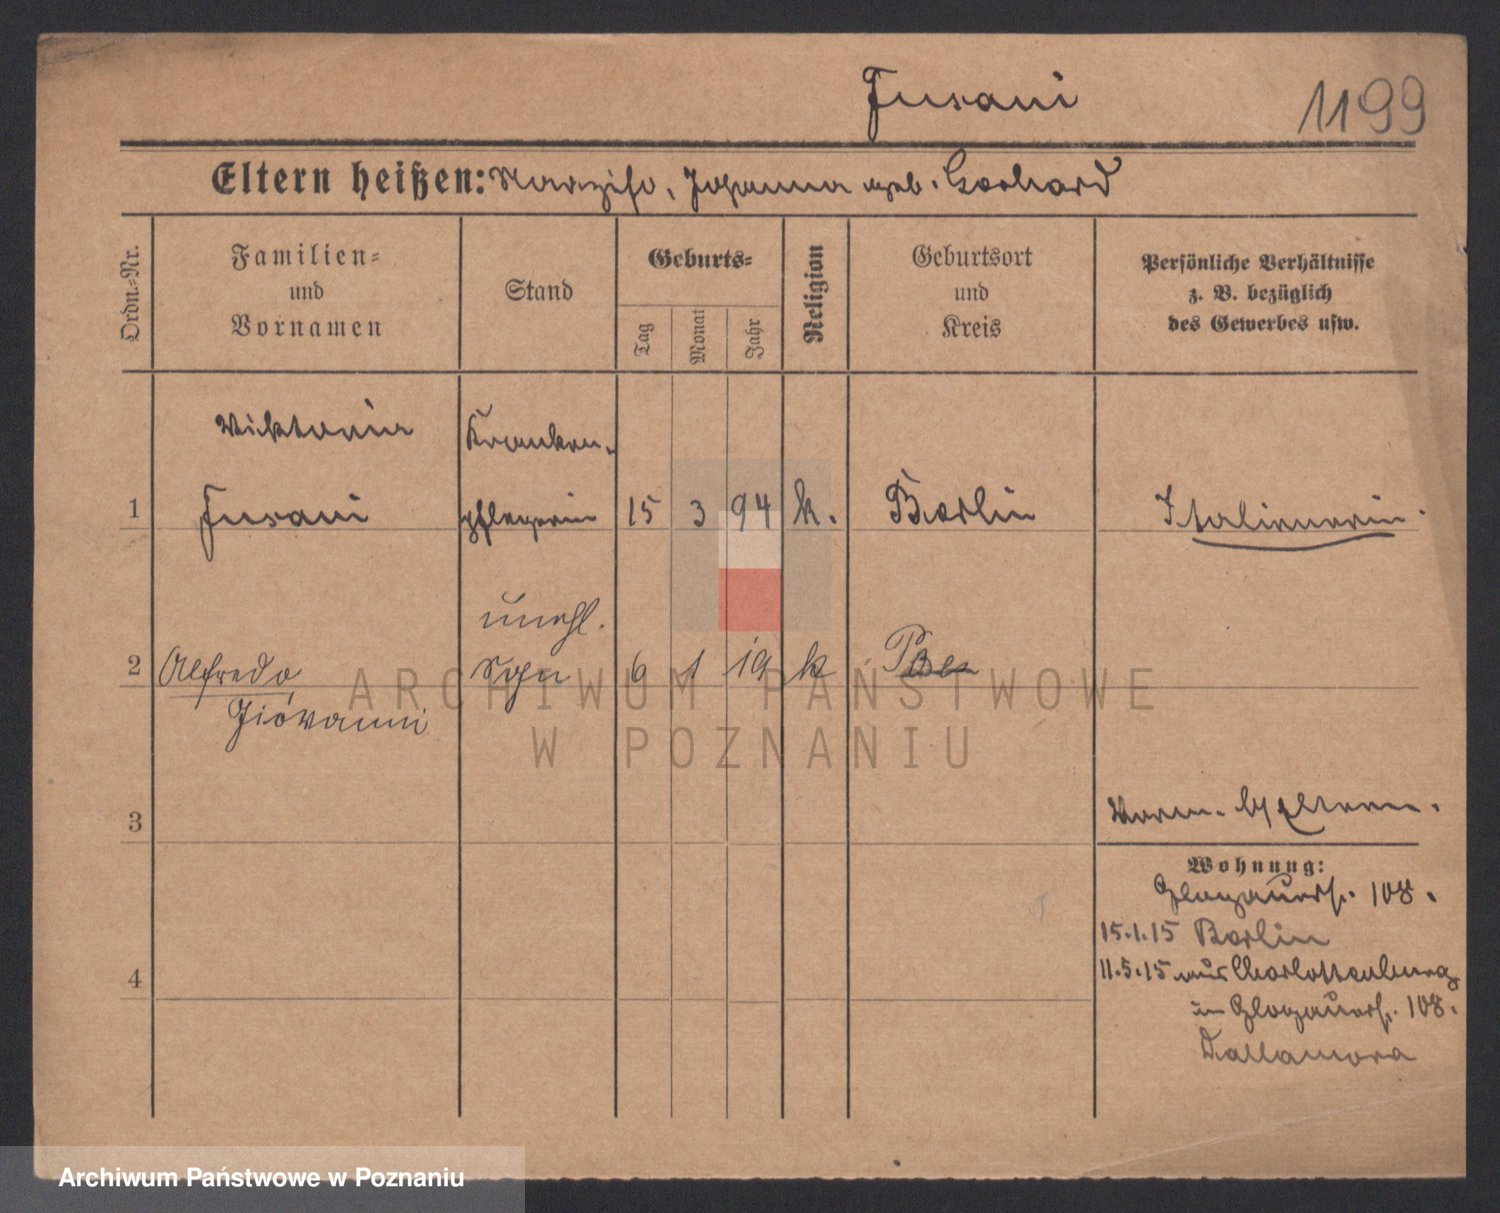 Fusani
1199
Eltern heißen: Narziso, Johanna geb. Gerhard
Ordn.-Nr.
Familien-
und
Vornamen
Stand
Geburts-
Tag
Monat
Jahr
Religion
Geburtsort
und
Kreis
Persönliche Verhältnisse
z. B. bezüglich
des Gewerbes usw.
Viktoria
Kranken-
1
Fusani
pflegerin
15 3 94
k.
Berlin
Italienerin.
unehl.
2
Alfredo,
Sohn
6 1 19
k
Giovanni
3
Eltern.
Wohnung:
Glogauerstr. 108.
15.1.15 Berlin
4
11.5.15 aus Charlottenburg
in Glogauerstr. 108.
Dallamora
ARCHIWUM PAŃSTWOWE
W POZNANIU
Archiwum Państwowe w Poznaniu